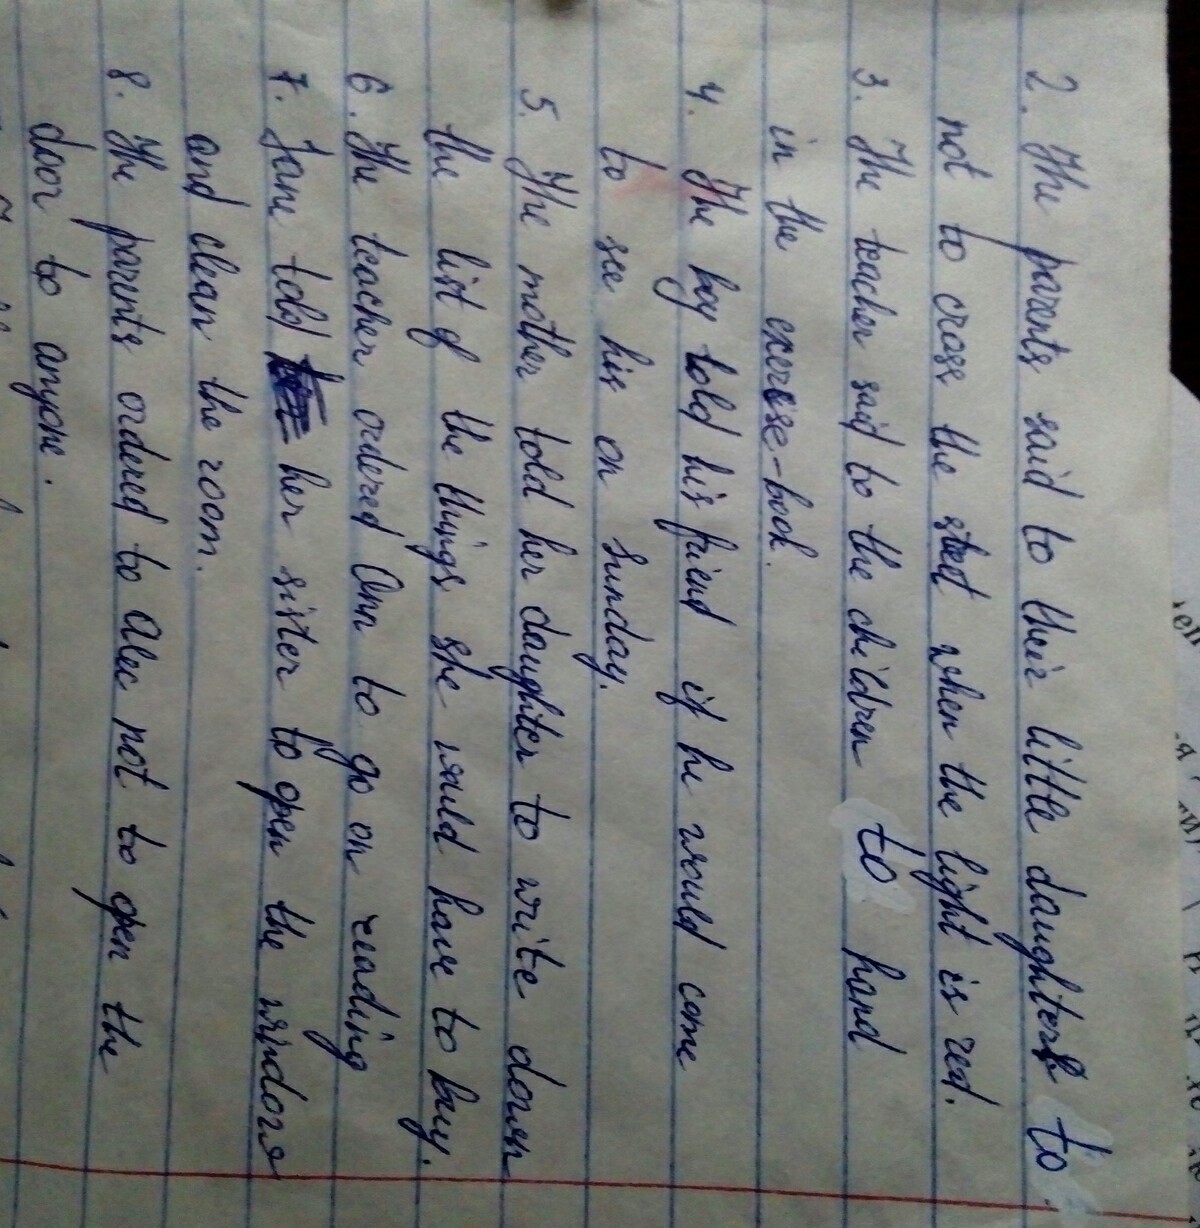 2. The parents said to their little daughters to
not to cross the steet when the light is red.
3. The teacher said to the children to hand
in the exercise-book.
4. The boy told his friend if he would come
to see his on Sunday.
5. The mother told her daughter to write down
the list of the things she would have to buy.
6. The teacher ordered Ann to go on reading
7. Jane told her sister to open the windows
and clean the room.
8. The parents ordered to Alec not to open the
door to anyone.